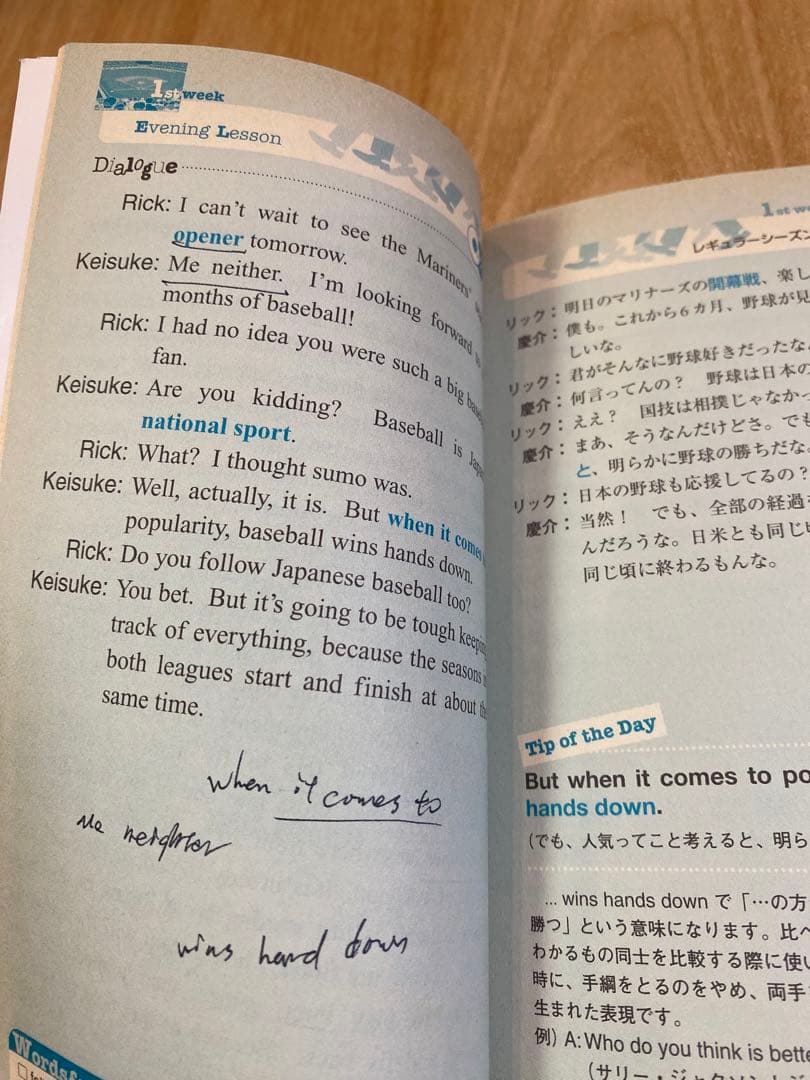 1st week
Evening Lesson
Dialogue
Rick: I can't wait to see the Mariners'
opener tomorrow.
Keisuke: Me neither. I'm looking forward to
months of baseball!
Rick: I had no idea you were such a big
fan.
Keisuke: Are you kidding? Baseball is
national sport.
Rick: What? I thought sumo was.
Keisuke: Well, actually, it is. But when it comes
popularity, baseball wins hands down.
Rick: Do you follow Japanese baseball too?
Keisuke: You bet. But it's going to be tough keeping
track of everything, because the seasons
both leagues start and finish at about the
same time.
when it comes to
me neighter
wins hand down
Words
1st we
レギュラーシーズン
リック：明日のマリナーズの開幕戦、楽し
慶介：僕も。これから6ヵ月、野球が見
しいな。
リック：君がそんなに野球好きだったな
慶介：何言ってんの？ 野球は日本の
リック：ええ？ 国技は相撲じゃなかっ
慶介：まあ、そうなんだけどさ。でも
と、明らかに野球の勝ちだな。
リック：日本の野球も応援してるの？
慶介：当然！ でも、全部の経過
んだろうな。日米とも同じ
同じ頃に終わるもんな。
Tip of the Day
But when it comes to po
hands down.
（でも、人気ってこと考えると、明ら
... wins hands down で「…の方
勝つ」という意味になります。比べ
わかるもの同士を比較する際に使い
時に、手綱をとるのをやめ、両手
生まれた表現です。
例）A: Who do you think is bette
（サリー・ジャクソントジ